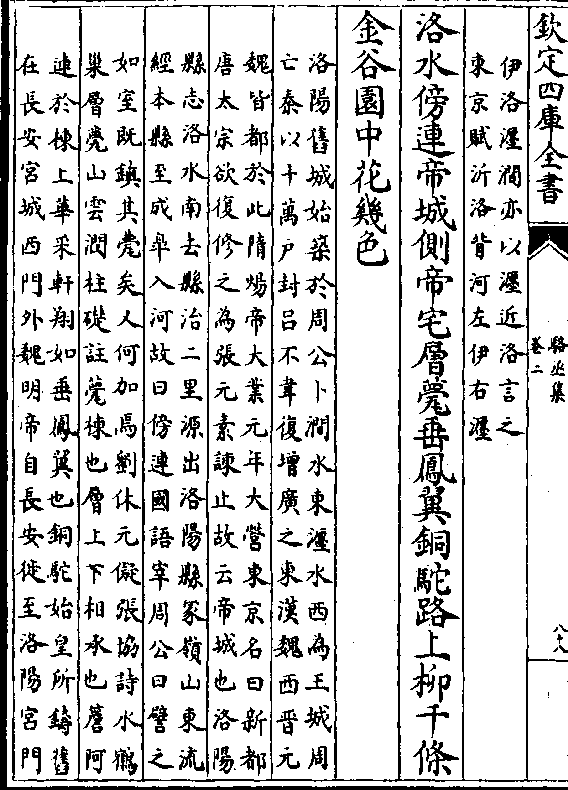 欽定四庫全書
駱丞集
卷二
六
伊洛瀍澗亦以瀍近洛言之
東京賦泝洛背河左伊右瀍
洛水傍連帝城側帝宅層甍垂鳳翼銅駝路上柳千條
金谷園中花幾色
洛陽舊城始築於周公卜澗水東瀍水西為王城周
亡秦以十萬戸封吕不韋復增廣之東漢魏西晉元
魏皆都於此隋煬帝大業元年大營東京名曰新都
唐太宗欲復修之為張元素諫止故云帝城也洛陽
縣志洛水南去縣治二里源出洛陽縣冢嶺山東流
經本縣至成臯入河故曰傍連國語宰周公曰譬之
如室既鎮其甍矣人何加焉劉休元儗張協詩水鸛
巢層甍山雲潤柱礎註甍棟也層上下相承也簷阿
連於棟上華采軒翔如垂鳳翼也銅駝始皇所鑄舊
在長安宮城西門外魏明帝自長安徙至洛陽宮門